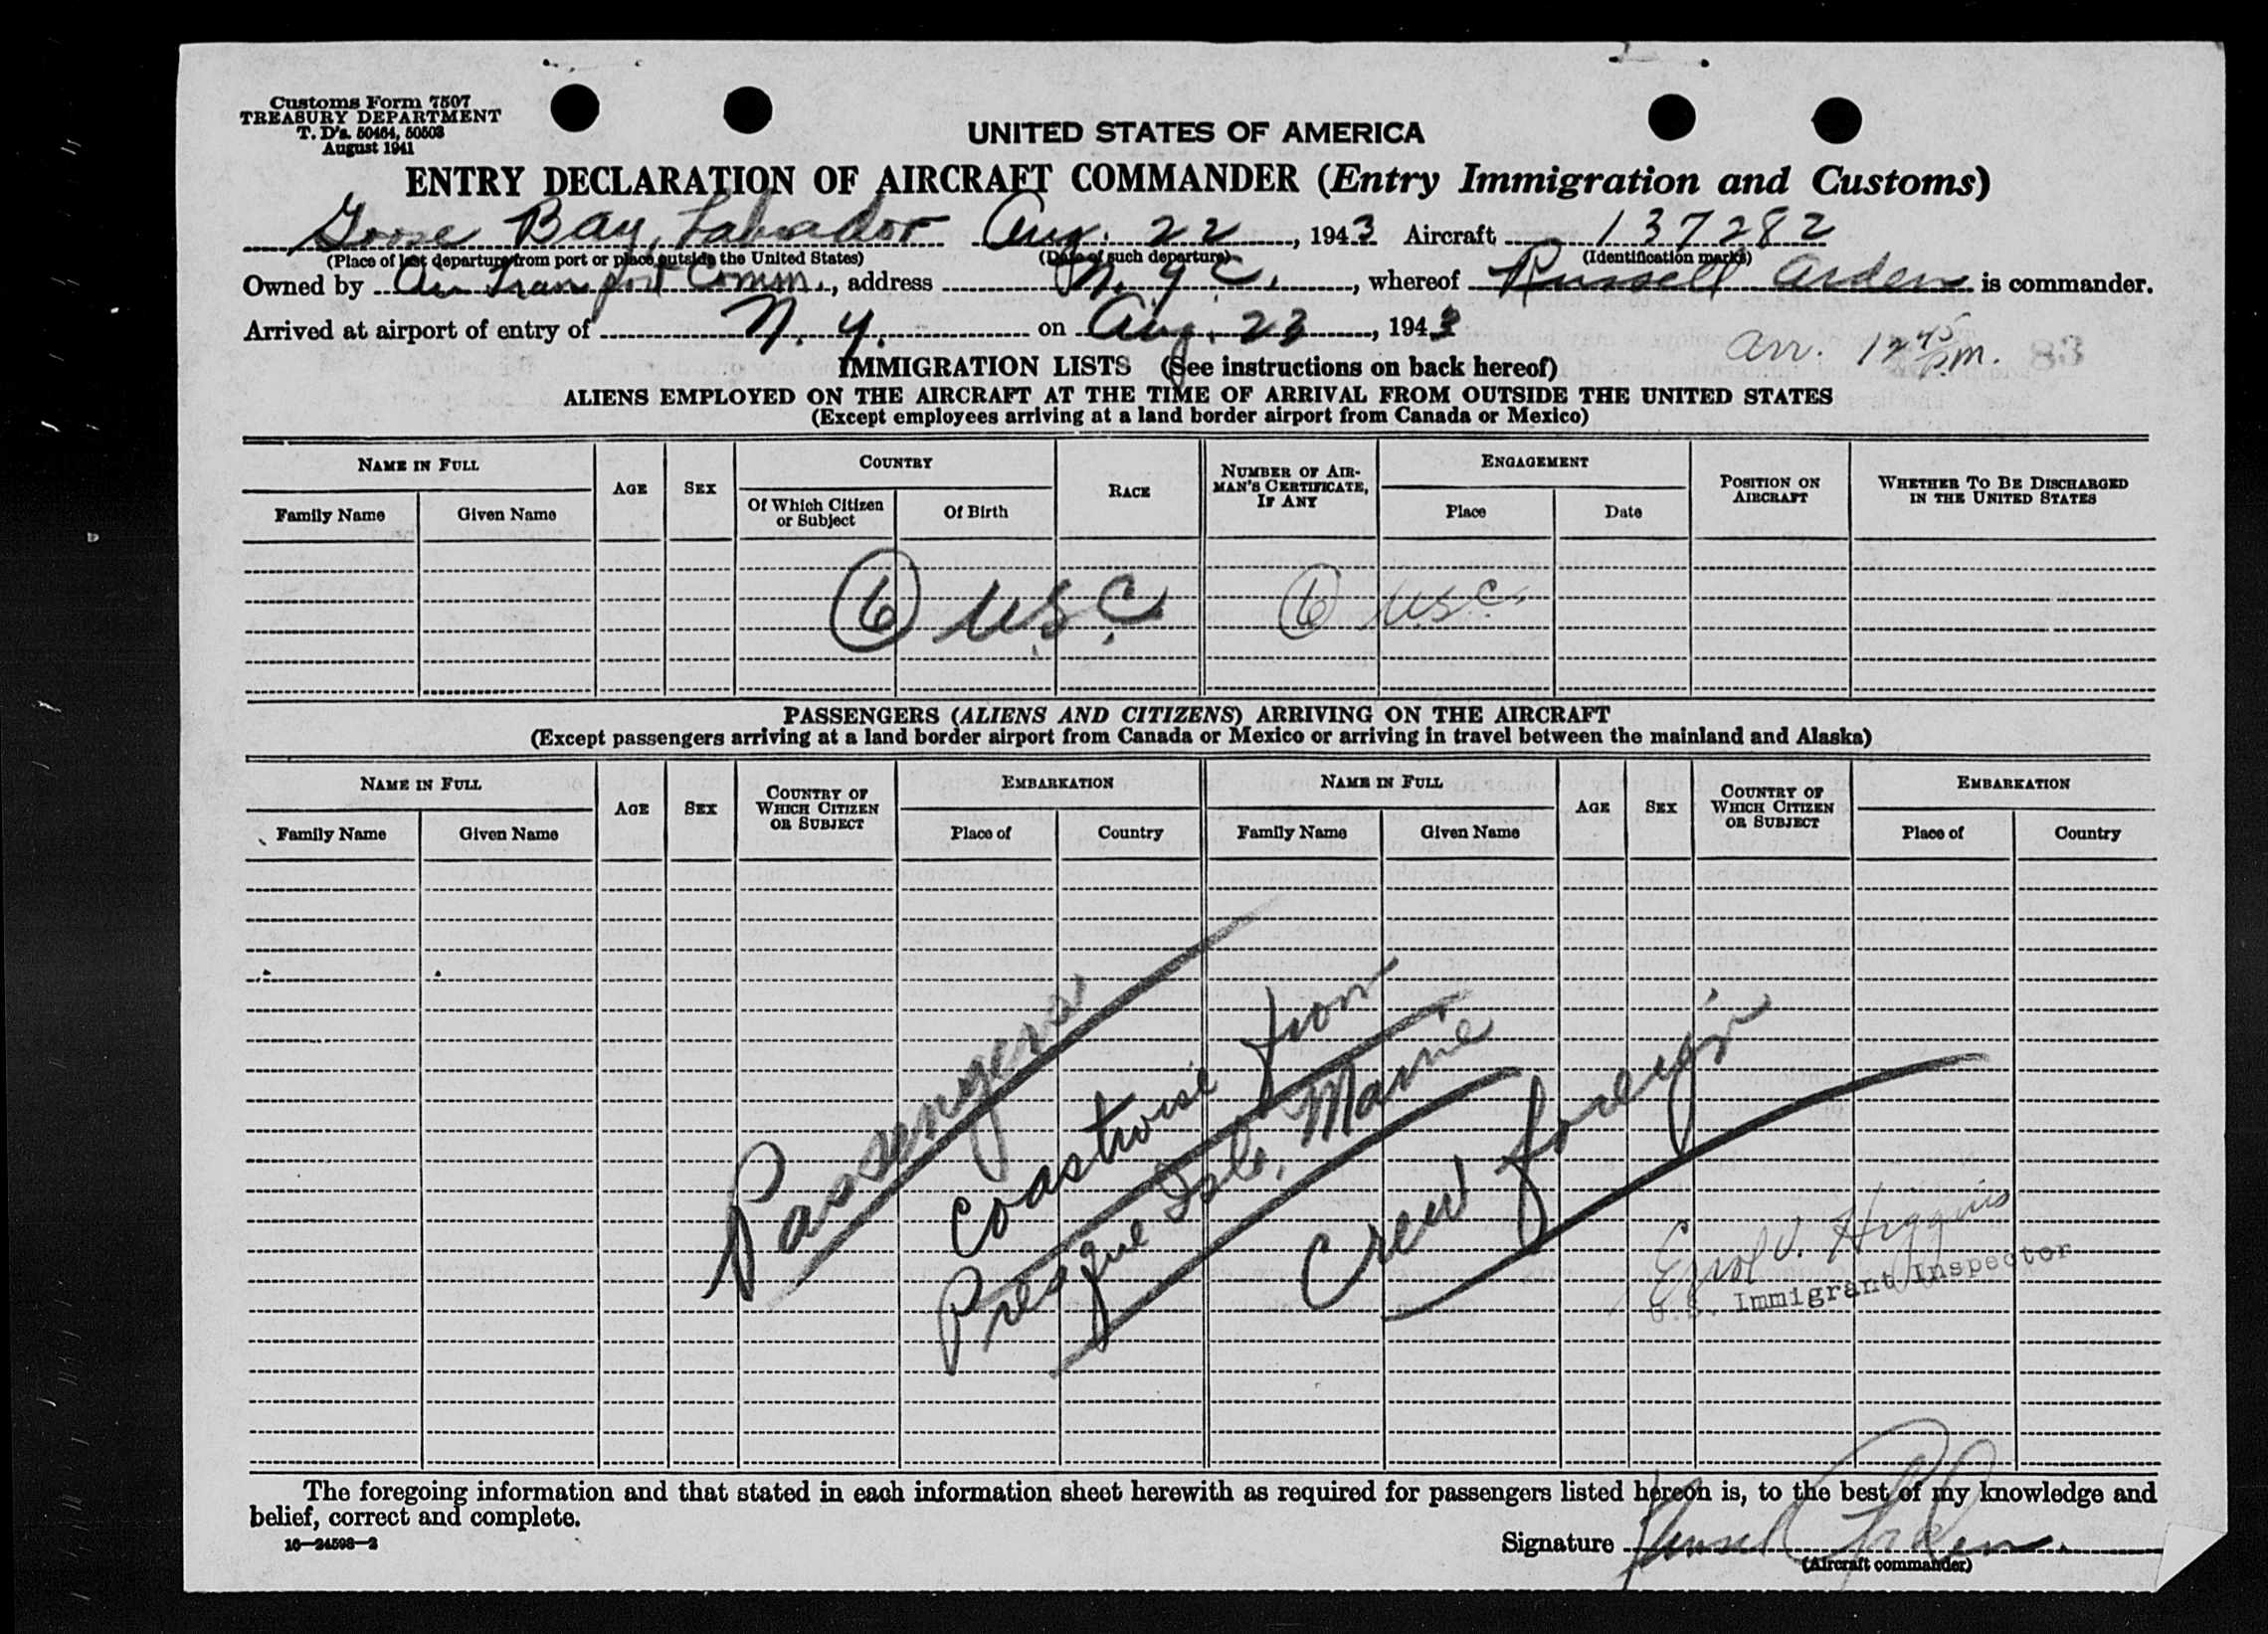 Customs Form 7507
TREASURY DEPARTMENT
T. D's. 50464, 50503
August 1941
UNITED STATES OF AMERICA
ENTRY DECLARATION OF AIRCRAFT COMMANDER (Entry Immigration and Customs)
Goose Bay, Labrador Aug. 22, 1943 Aircraft 137282
(Place of last departure from port or place outside the United States) (Date of such departure) (Identification marks)
Owned by Air Transport Comm., address N.Y.C., whereof Russell Arden is commander.
Arrived at airport of entry of N.Y. on Aug. 23, 1943
arr. 12 45 pm. 83
IMMIGRATION LISTS (See instructions on back hereof)
ALIENS EMPLOYED ON THE AIRCRAFT AT THE TIME OF ARRIVAL FROM OUTSIDE THE UNITED STATES
(Except employees arriving at a land border airport from Canada or Mexico)
NAME IN FULL AGE SEX COUNTRY RACE NUMBER OF AIRMAN'S CERTIFICATE, IF ANY ENGAGEMENT POSITION ON AIRCRAFT WHETHER TO BE DISCHARGED IN THE UNITED STATES
Family Name Given Name Of Which Citizen or Subject Of Birth Place Date
6 U.S.C. 6 U.S.C.
PASSENGERS (ALIENS AND CITIZENS) ARRIVING ON THE AIRCRAFT
(Except passengers arriving at a land border airport from Canada or Mexico or arriving in travel between the mainland and Alaska)
NAME IN FULL AGE SEX COUNTRY OF WHICH CITIZEN OR SUBJECT EMBARKATION NAME IN FULL AGE SEX COUNTRY OF WHICH CITIZEN OR SUBJECT EMBARKATION
Family Name Given Name Place of Country Family Name Given Name Place of Country
Passengers
coastwise from
Presque Isle, Maine
Crew foreign
Errol V. Higgins
U.S. Immigrant Inspector
The foregoing information and that stated in each information sheet herewith as required for passengers listed hereon is, to the best of my knowledge and
belief, correct and complete.
16—24598-2
Signature Russell Arden
(Aircraft commander)